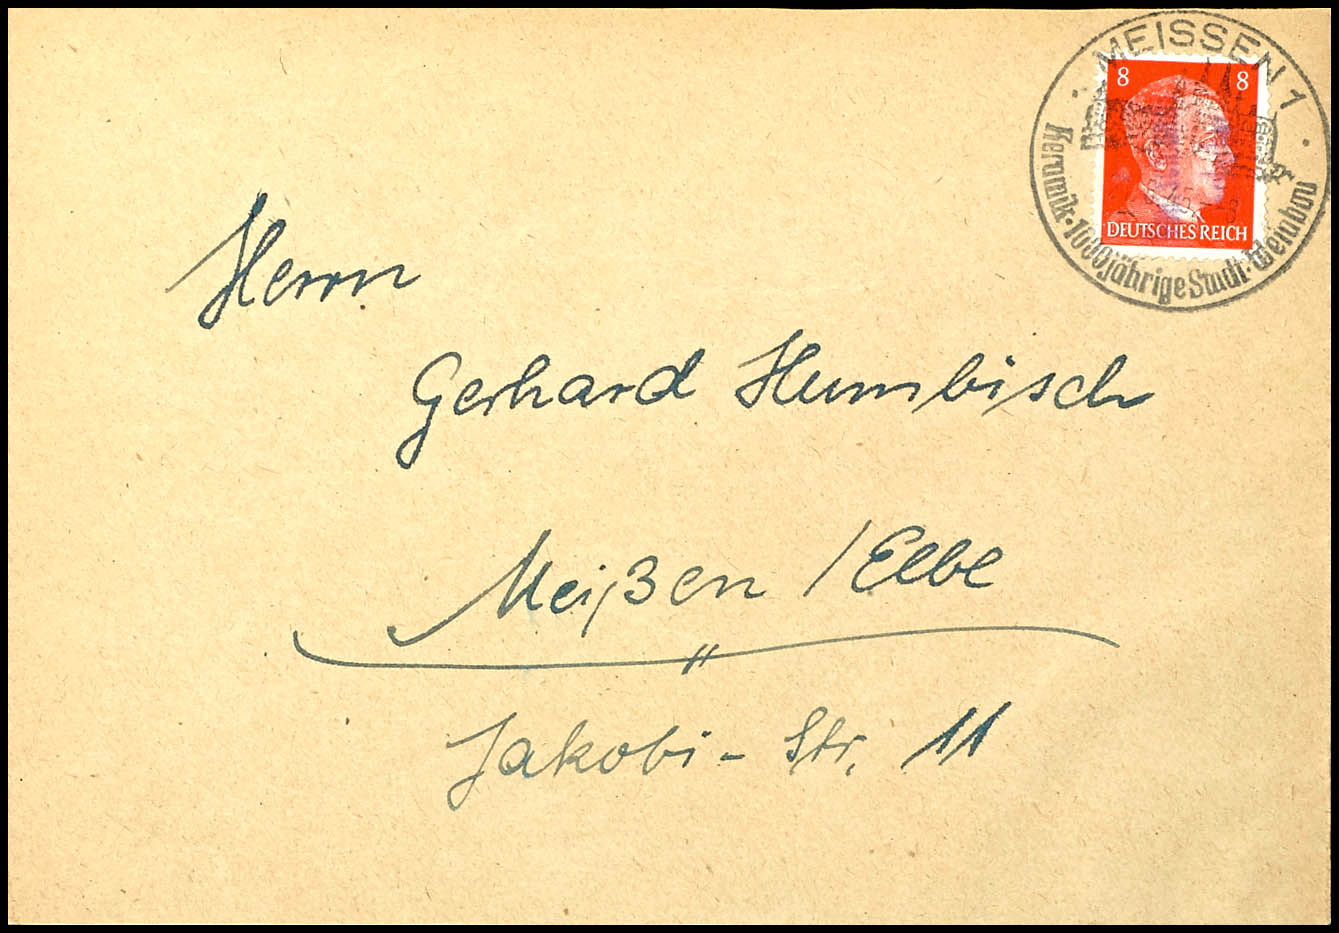 MEISSEN 1
8 8
DEUTSCHES REICH
Keramik · 1000jährige Stadt · Weinbau
Herrn
Gerhard Humbisch
Meißen / Elbe
Jakobi - Str. 11